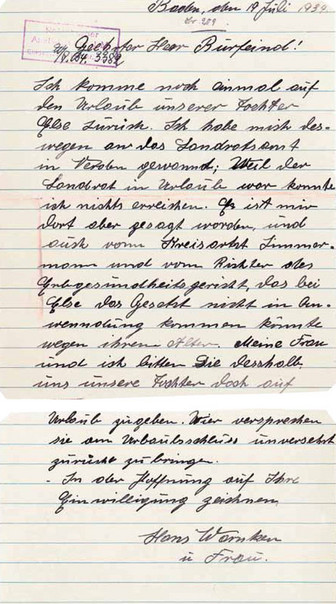 Baden, den 19 Juli 1938
Nr 209
IV. 04 3589
Geehrter Herr Bürfeind!
Ich komme noch einmal auf
den Urlaub unserer Tochter
Else zurück. Ich habe mich des-
wegen an das Landratsamt
in Verden gewandt; Weil der
Landrat in Urlaub war konnte
ich nichts erreichen. Es ist mir
dort aber gesagt worden, und
auch vom Kreisarzt Zimmer-
mann und vom Richter des
Erbgesundheitsgericht, das bei
Else das Gesetz nicht in An-
wenndung kommen könnte
wegen ihrem Alter. Meine Frau
und ich bitten Sie desshalb
uns unsere Tochter doch auf
Urlaub zugeben. Wier versprechen
sie am Urlaubsschluss unversehrt
zurück zu bringen.
- In der Hoffnung auf Ihre
Einwilligung zeichnen
Hans Warnken
u Frau.